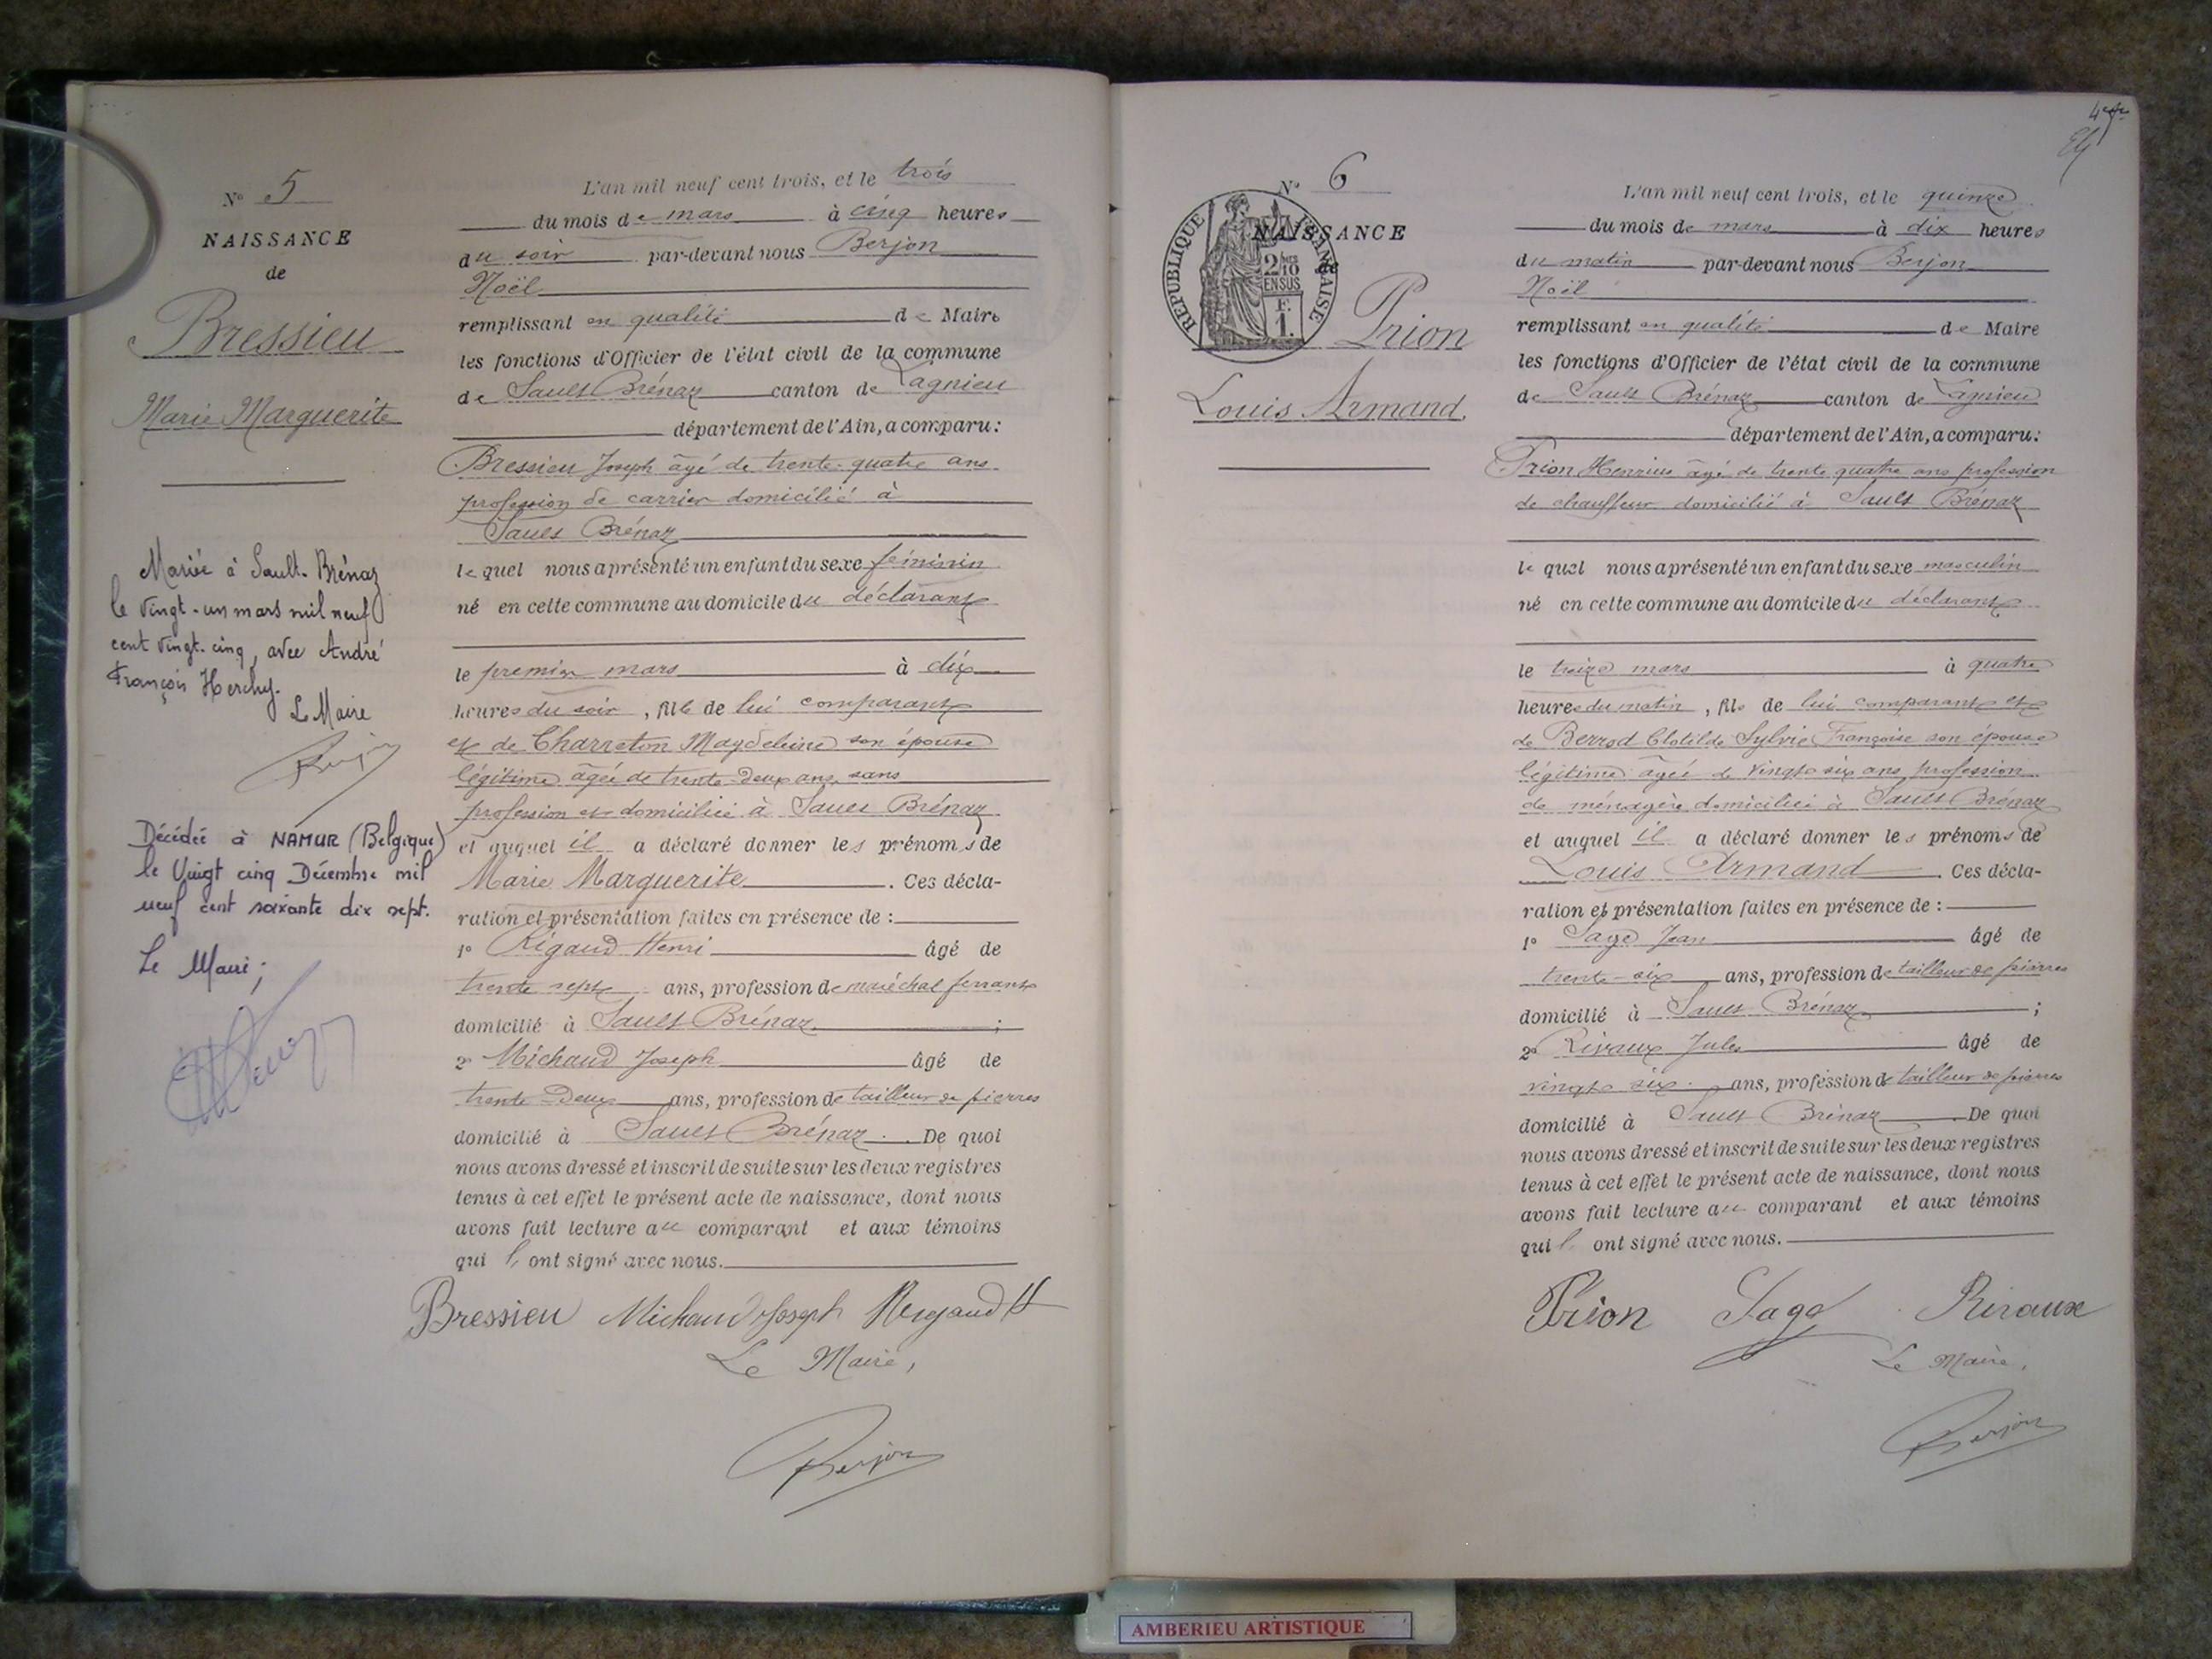 N° 5
NAISSANCE
de
Bressieu
Marie Marguerite
Mariée à Sault-Brénaz
le vingt-un mars mil neuf
cent vingt-cinq, avec André
François Herchy.
Le Maire
Décédée à NAMUR (Belgique)
le Vingt cinq Décembre mil
neuf cent soixante dix sept.
Le Maire;
L'an mil neuf cent trois, et le trois
du mois de mars à cinq heures
du soir par-devant nous Berjon
Noël
remplissant en qualité de Maire
les fonctions d'Officier de l'état civil de la commune
de Sault Brénaz canton de Lagnieu
département de l'Ain, a comparu:
Bressieu Joseph âgé de trente-quatre ans
profession de carrier domicilié à
Sault Brénaz
lequel nous a présenté un enfant du sexe féminin
né en cette commune au domicile du déclarant
le premier mars à dix
heures du soir, fille de lui comparant
et de Charreton Magdeleine son épouse
légitime âgée de trente-deux ans, sans
profession et domiciliée à Sault Brénaz
et auquel il a déclaré donner les prénoms de
Marie Marguerite. Ces décla-
ration et présentation faites en présence de :
1° Rigaud Henri âgé de
trente sept ans, profession de maréchal ferrant
domicilié à Sault Brénaz ;
2° Michaud Joseph âgé de
trente deux ans, profession de tailleur de pierres
domicilié à Sault Brénaz. De quoi
nous avons dressé et inscrit de suite sur les deux registres
tenus à cet effet le présent acte de naissance, dont nous
avons fait lecture au comparant et aux témoins
qui l'ont signé avec nous.
Bressieu Michaud Joseph Rigaud H
Le Maire,
Berjon
N° 6
NAISSANCE
de
REPUBLIQUE FRANÇAISE
2/10es
EN SUS
F.
1.
Prion
Louis Armand.
L'an mil neuf cent trois, et le quinze
du mois de mars à dix heures
du matin par-devant nous Berjon
Noël
remplissant en qualité de Maire
les fonctions d'Officier de l'état civil de la commune
de Sault Brénaz canton de Lagnieu
département de l'Ain, a comparu:
Prion Henrius âgé de trente quatre ans profession
de chauffeur domicilié à Sault Brénaz
lequel nous a présenté un enfant du sexe masculin
né en cette commune au domicile du déclarant
le treize mars à quatre
heures du matin, fils de lui comparant et
de Berrod Clotilde Sylvie Françoise son épouse
légitime âgée de vingt six ans, profession
de ménagère domiciliée à Sault Brénaz
et auquel il a déclaré donner les prénoms de
Louis Armand. Ces décla-
ration et présentation faites en présence de :
1° Sage Jean âgé de
trente-six ans, profession de tailleur de pierres
domicilié à Sault Brénaz ;
2° Rivaux Jules âgé de
vingt six ans, profession de tailleur de pierres
domicilié à Sault Brénaz De quoi
nous avons dressé et inscrit de suite sur les deux registres
tenus à cet effet le présent acte de naissance, dont nous
avons fait lecture au comparant et aux témoins
qui l'ont signé avec nous.
Prion Sage Rivaux
Le Maire,
Berjon
AMBERIEU ARTISTIQUE